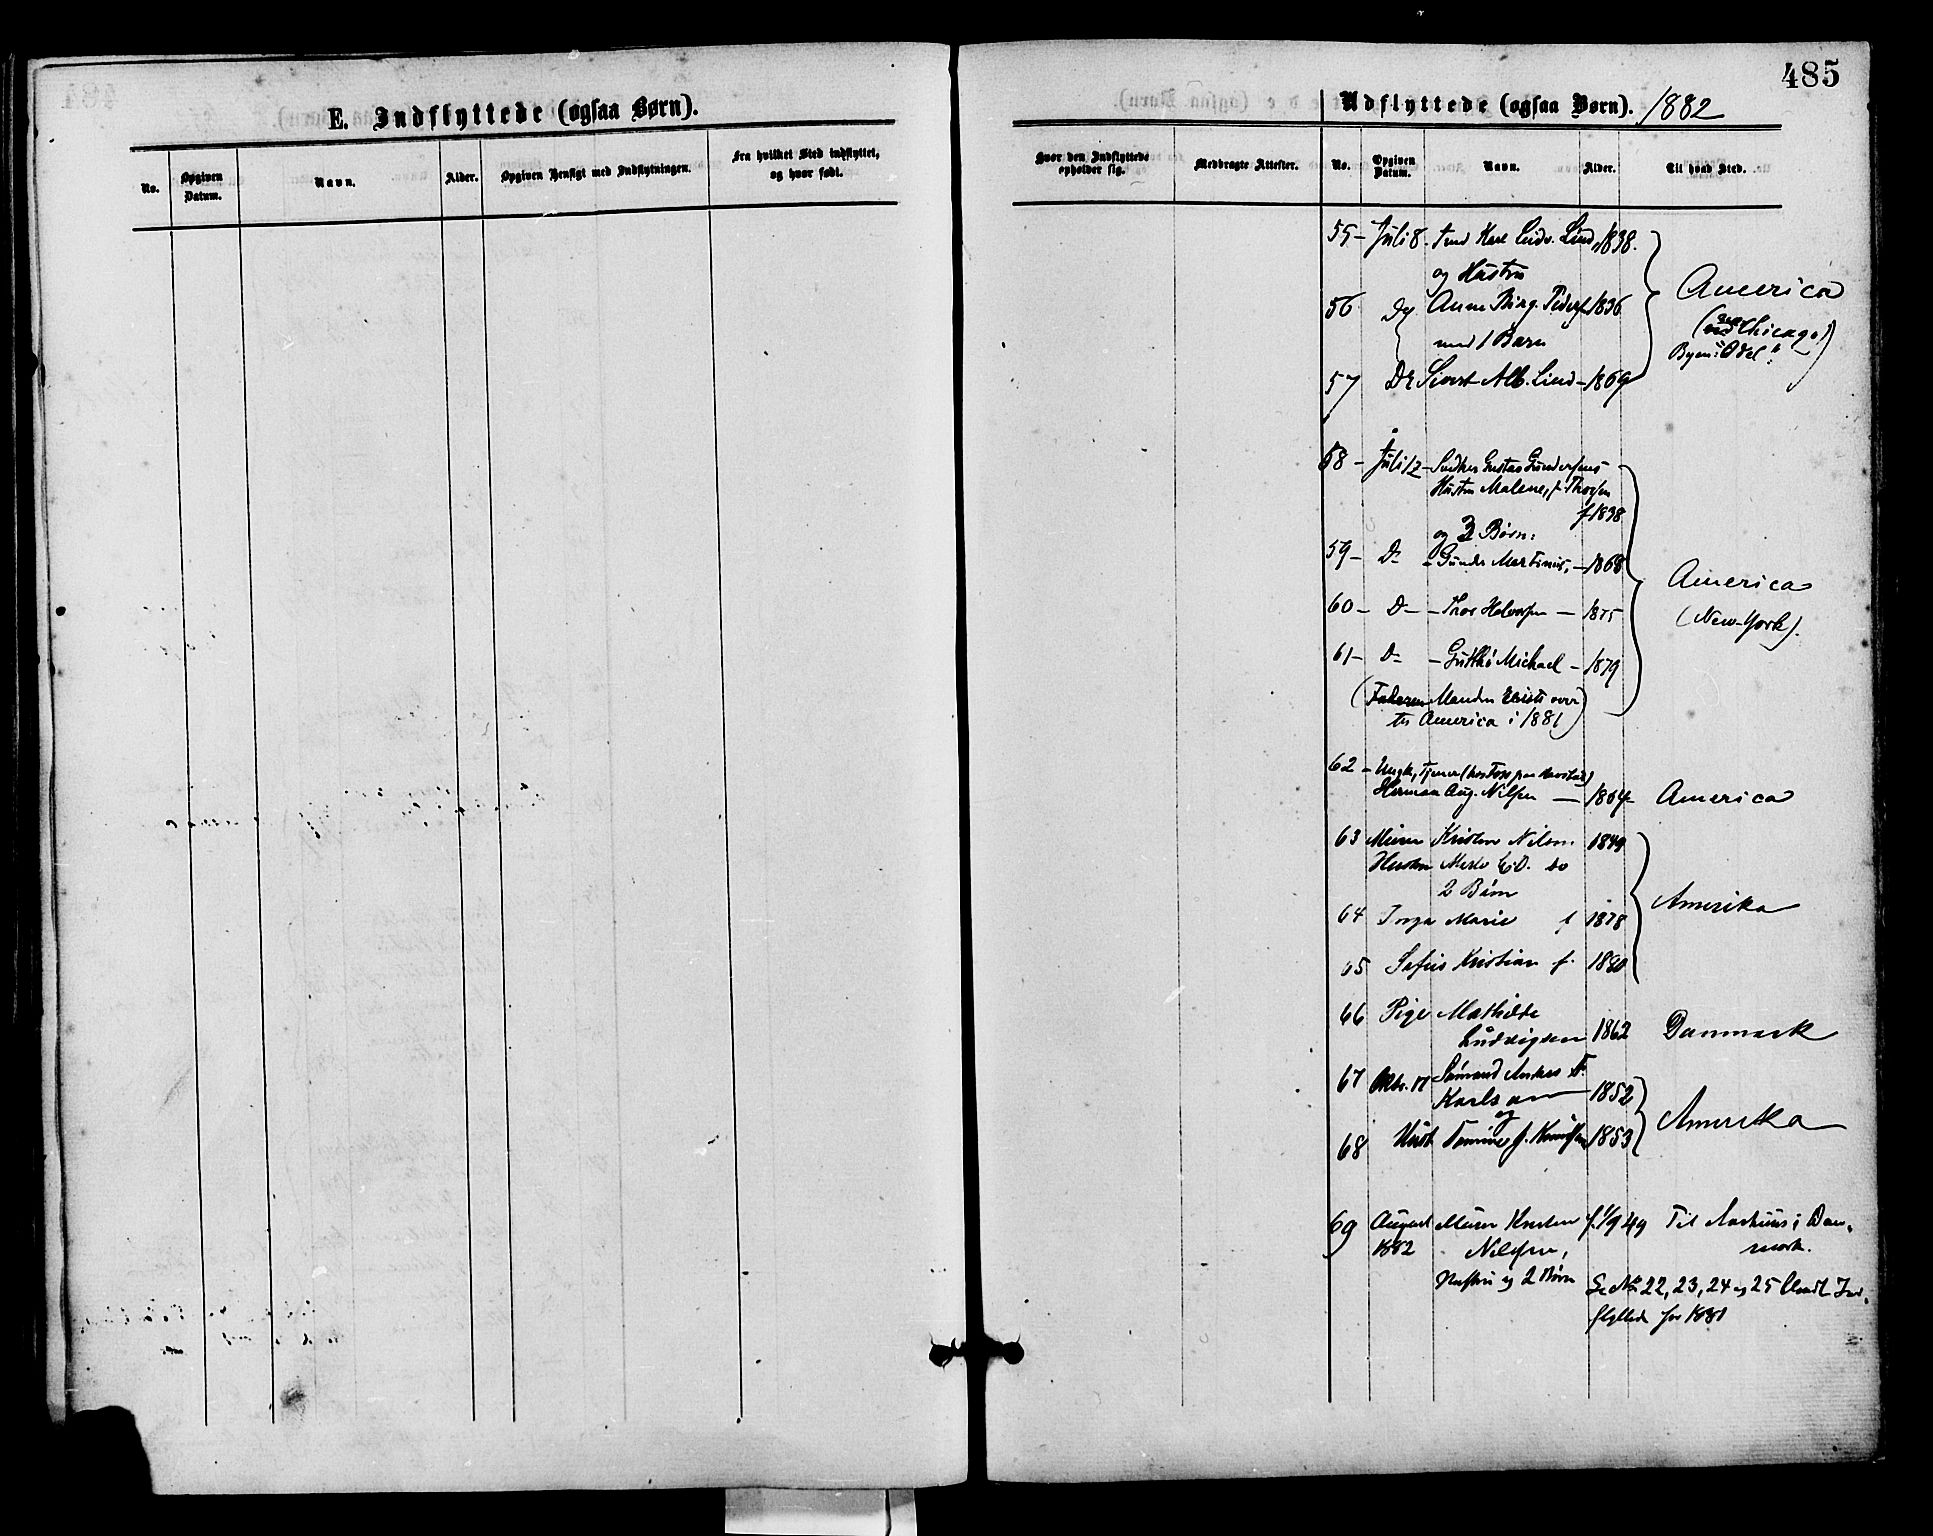 485
E. Indflyttede (ogsaa Børn).
No.
Opgiven Datum.
Navn.
Alder.
Opgiven Hensigt med Indflytningen.
Fra hvilket Sted indflyttet, og hvor født.
Udflyttede (ogsaa Børn). 1882
Hvor den Indflyttede opholder sig.
Medbragte Attester.
No.
Opgiven Datum.
Navn.
Alder.
Til hvad Sted.
55 - Juli 8. Karl Ludv. Lind 1838.
og Hustru
56 Do Anne Birg. Peders 1836
med 1 Barn
57 Do Sivert Alb. Lind - 1869
America
(Chicago)
Byen: "Odel"
58 - Juli 12 - Snedker Gustav Gundersens
Hustru Malene, f. Thorsen
f 1838
og 3 Børn:
59 - D - Gunder Martinius, - 1868
60 - D - Thor Halvorsen - 1875
61 - D - Michael - 1879
(Faderen Manden reiste over
til America i 1881)
America
(New-York).
62 - Ungk, Tjener
Herman Aug. Nilsen - 1864 - America
63 Murer Kristen Nilsen 1849
Hustru
2 Børn
64 Inga Marie f 1878
65 Kristian f. 1880
Amerika
66 Pige Mathilde
Ludvigsen 1862 Danmark
67 Oktbr. 17 Sømand Anders F.
Karlsen 1852
og
68 Hust f. Knudsen 1853
Amerika
69 August Murer Kristen f. 1/9 49 Til Aarhuus i Dan-
1882 Nilsen, mark.
Hustru og 2 Børn
Se No 22, 23, 24 og 25 blandt Ind-
flyttede for 1881